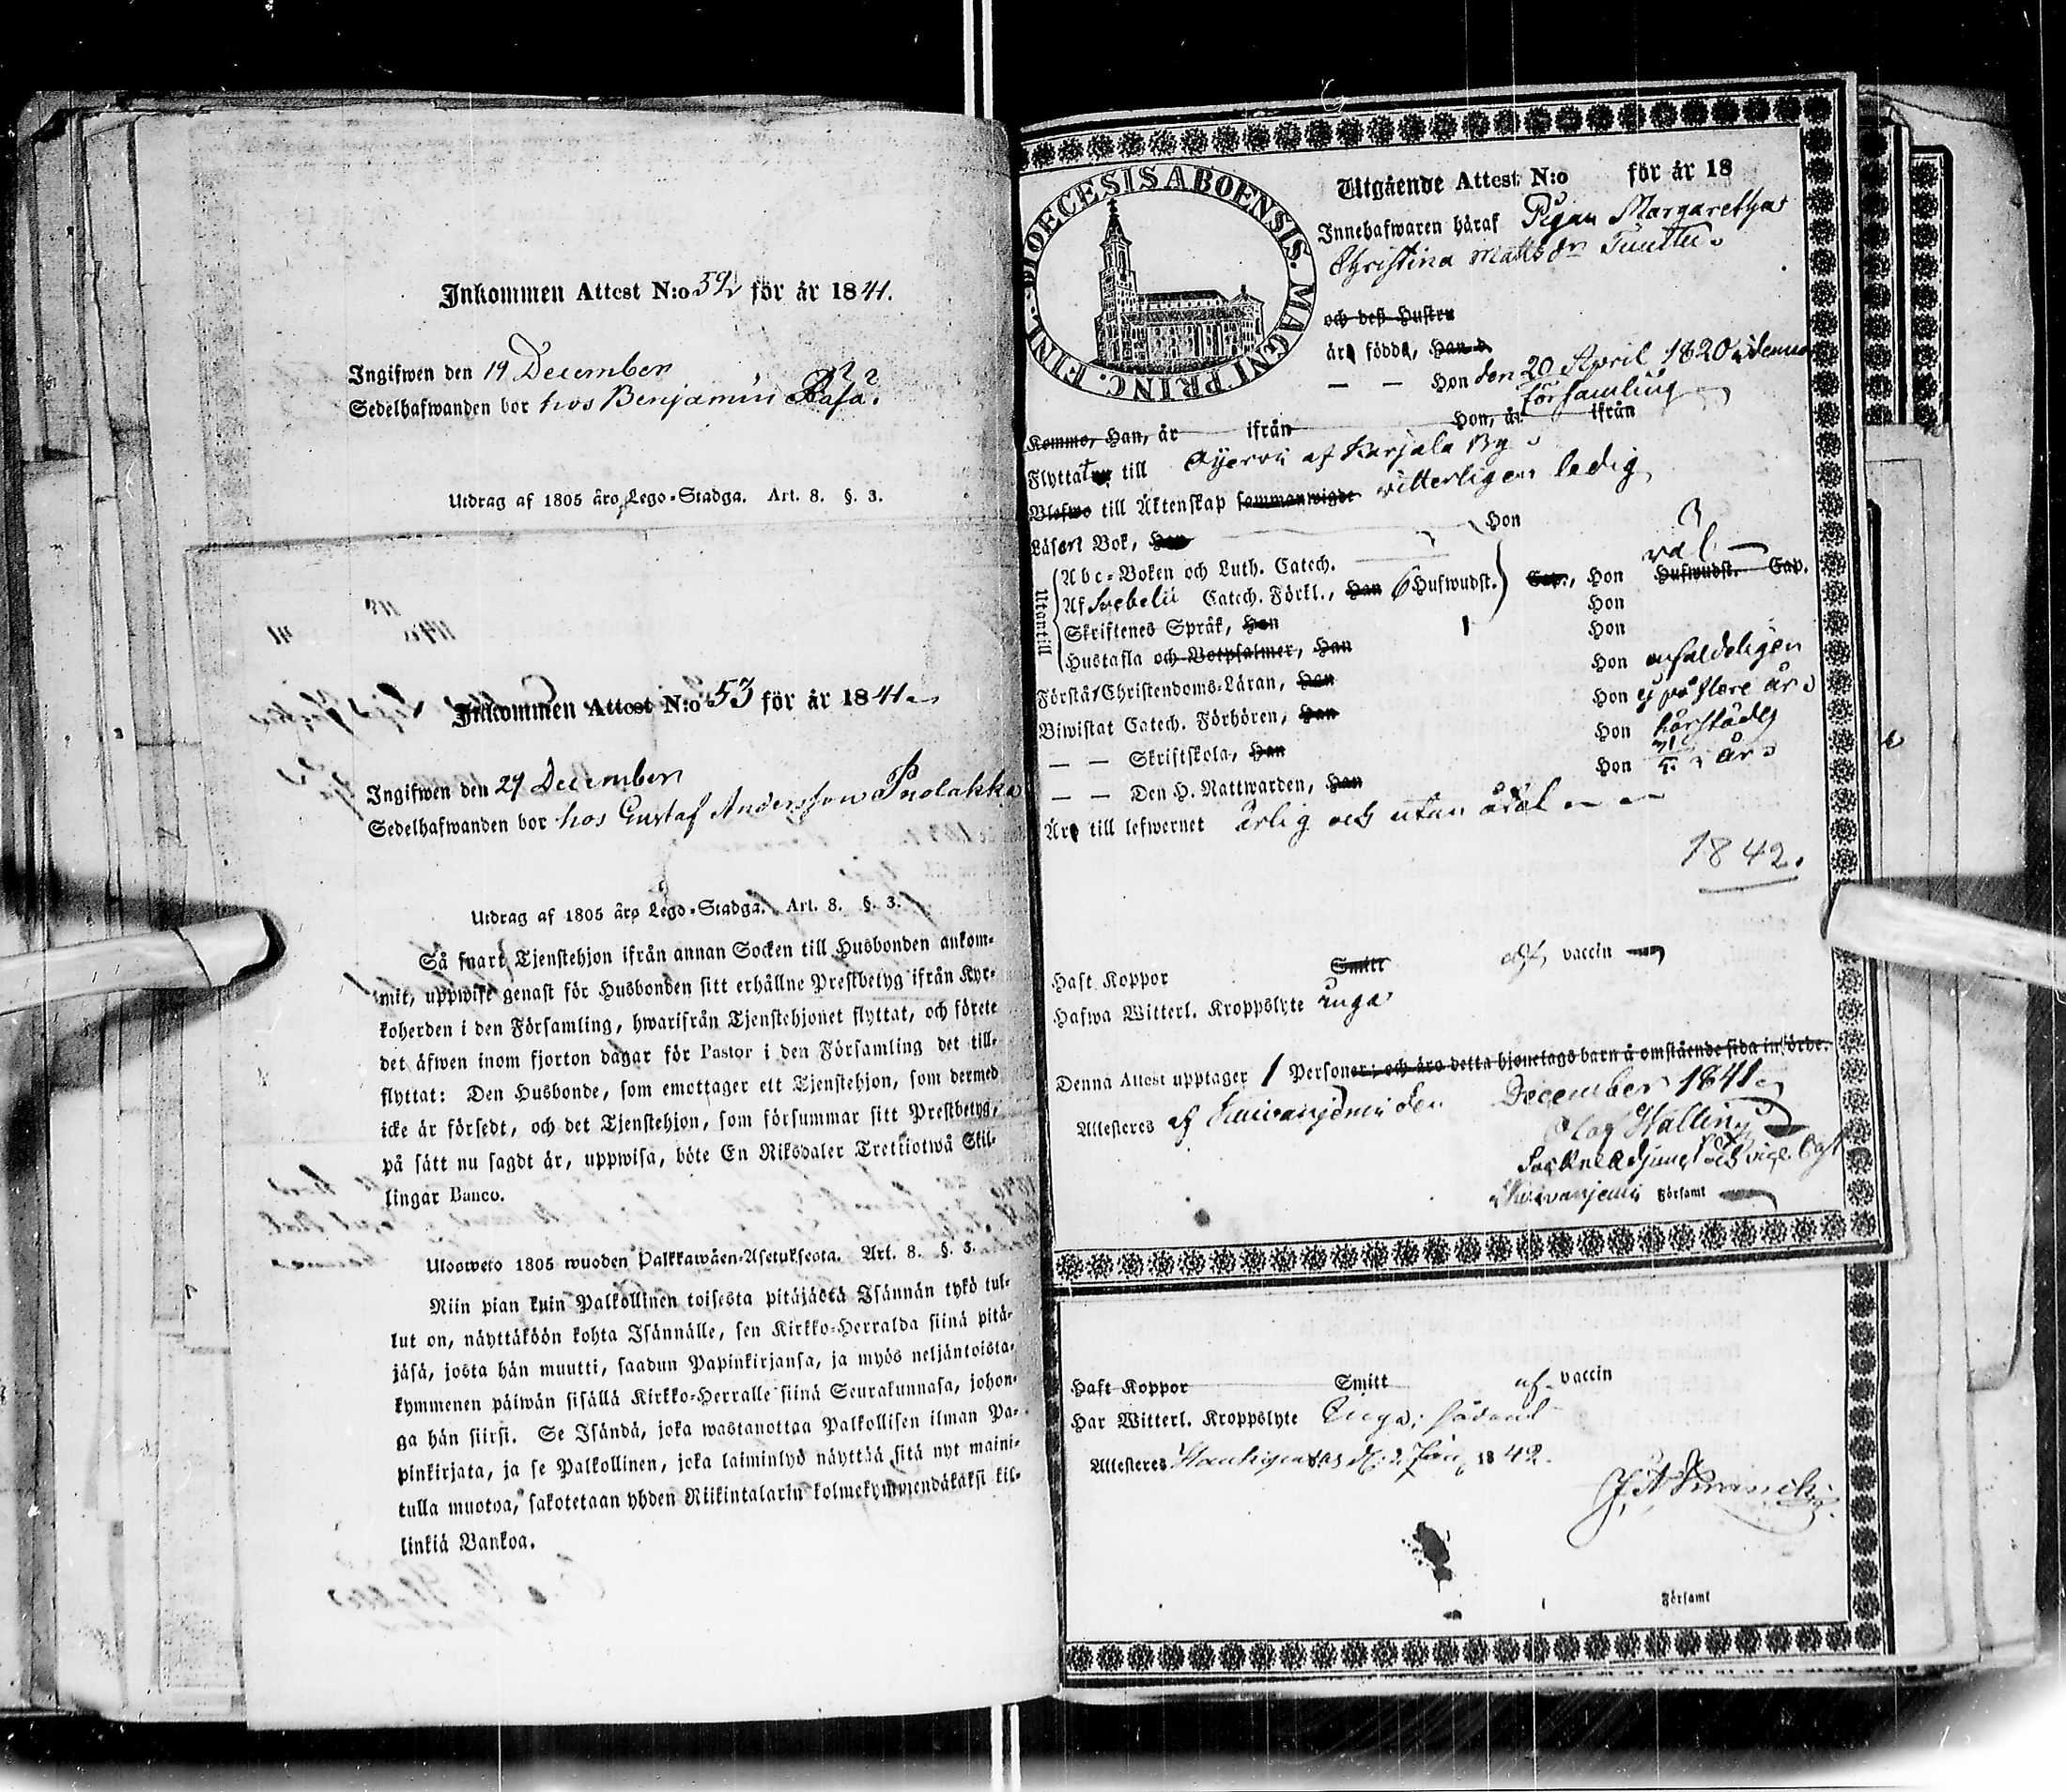 Inkommen Attest N:o 52 för år 1841.
Ingifwen den 19 December
Sedelhafwanden bor hos Benjamin Rasa.
Utdrag af 1805 års Lego-Stadga. Art. 8. §. 3.
Inkommen Attest N:o 53 för år 1841
Ingifwen den 29 December
Sedelhafwanden bor hos Gustaf Andersson Puolakka
Utdrag af 1805 års Lego-Stadga. Art. 8. §. 3.
Så snart Tjenstehjon ifrån annan Socken till Husbonden ankom-
mit, uppwise genast för Husbonden sitt erhållne Prestbetyg ifrån Kyr-
koherden i den Församling, hwarifrån Tjenstehjonet flyttat, och förete
det äfwen inom fjorton dagar för Pastor i den Församling det till-
flyttat: Den Husbonde, som emottager ett Tjenstehjon, som dermed
icke är försedt, och det Tjenstehjon, som försummar sitt Prestbetyg,
på sätt nu sagdt är, uppwisa, böte En Riksdaler Trettiotwå Skil-
lingar Banco.
Ulosweto 1805 wuoden Palkkawäen-Asetuksesta. Art. 8. §. 3.
Niin pian kuin Palkollinen toisesta pitäjästä Isännän tykö tul-
lut on, näyttäköön kohta Isännälle, sen Kirkko-Herralda siinä pitä-
jäsä, josta hän muutti, saadun Papinkirjansa, ja myös neljäntoista-
kymmenen päiwän sisällä Kirkko-Herralle siinä Seurakunnasa, johon-
ga hän siirsi. Se Isändä, joka wastanottaa Palkollisen ilman Pa-
pinkirjata, ja se Palkollinen, joka laiminlyö näyttää sitä nyt maini-
tulla muotoa, sakotetaan yhden Riikintalarin kolmekymmendäkaksi kil-
linkiä Bankoa.
DIOECESIS ABOENSIS. MAGNI PRINC. FINL.
Utgående Attest N:o för år 18
Innehafwaren häraf Pigan Margaretha
Christina Mattsdr
och deß Hustru
äro födde, Han d.
— — Hon den 20 April 1820 i denna
församling
Kommo, Han, år ifrån Hon, år ifrån
Flyttat till af Karjala By
Blefwo till Äktenskap sammanwigde witterligen ledig
Läser i Bok, Han Hon
Utantill
Abc-Boken och Luth. Catech. väl
Af Svebelii Catech. Förkl., Han 6 Hufwudst. Cap., Hon Hufwudst. Cap.
Skriftenes Språk, Han Hon
Hustafla och Botpsalmer, Han Hon
Förstå Christendoms-Läran, Han Hon enfaldeligen
Biwistat Catech. Förhören, Han Hon ej på flere år
— — Skriftskola, Han Hon härstädes
— — Den H. Nattwarden, Han Hon år
Äro till lefwernet ärlig och utan
1842.
Haft Koppor Smitt af vaccin
Hafwa Witterl. Kroppslyte inga
Denna Attest upptager 1 Personer; och äro detta hjonetags barn å omstående sida införde.
Attesteres af Kuivaniemi den December 1841
Olog Walling
Församt
Haft Koppor Smitt af vaccin
Har Witterl. Kroppslyte Inga;
Attesteres 1842.
Församt